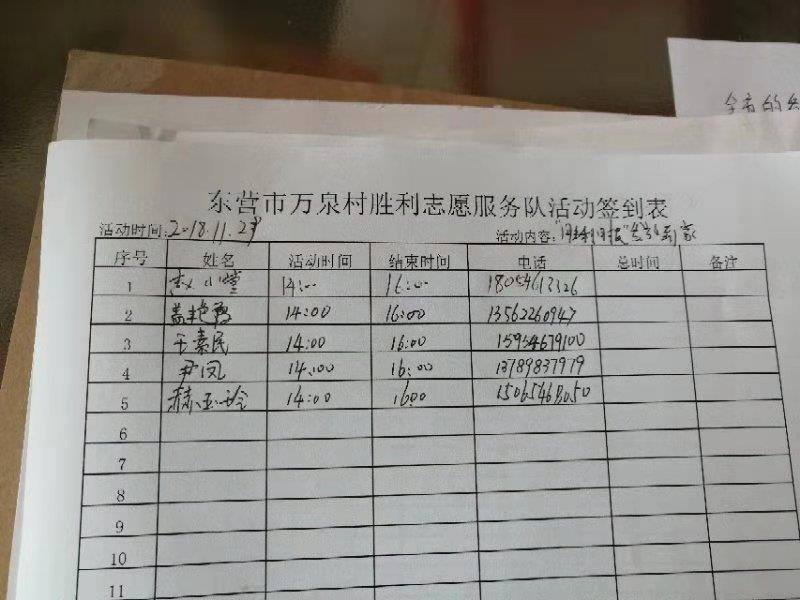 全市的
东营市万泉村胜利志愿服务队活动签到表
活动时间:2018.11.29 活动内容:"胜利日报"发到家
序号 姓名 活动时间 结束时间 电话 总时间 备注
1 赵小莹 14:00 16:00
2 14:00 16:00 13562260947
3 王素民 14:00 16:00 15954679100
4 尹凤 14:00 16:00 13789837979
5 郝玉玲 14:00 1600
6
7
8
9
10
11